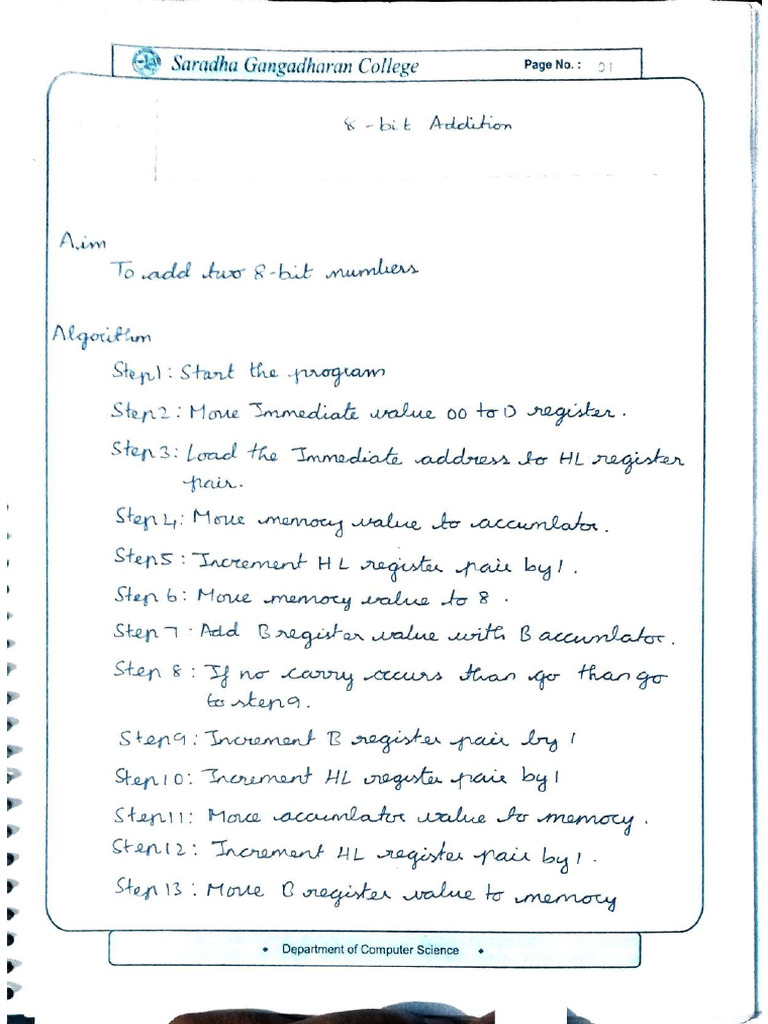 Saradha Gangadharan College
Page No. : 01
8-bit Addition
Aim
To add two 8-bit numbers
Algorithm
Step1: Start the program
Step2: Move Immediate value 00 to D register.
Step3: Load the Immediate address to HL register
pair.
Step 4: Move memory value to accumlator.
Step5: Increment HL register pair by 1.
Step 6: Move memory value to 8.
Step 7: Add B register value with B accumlator.
Step 8: If no carry occurs than go than go
to step9.
Step9: Increment B register pair by 1
Step10: Increment HL register pair by 1
Step11: Move accumlator value to memory.
Step12: Increment HL register pair by 1.
Step 13: Move B register value to memory
• Department of Computer Science •